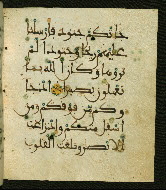 جاءتكم جنود فارسلنا
عليهم ريحا وجنودا لم
تروها وكان الله بما
تعملون بصيرا اذ جا
وكم من فوقكم ومن
اسفل منكم واذ زاغت
الابصر وبلغت القلوب